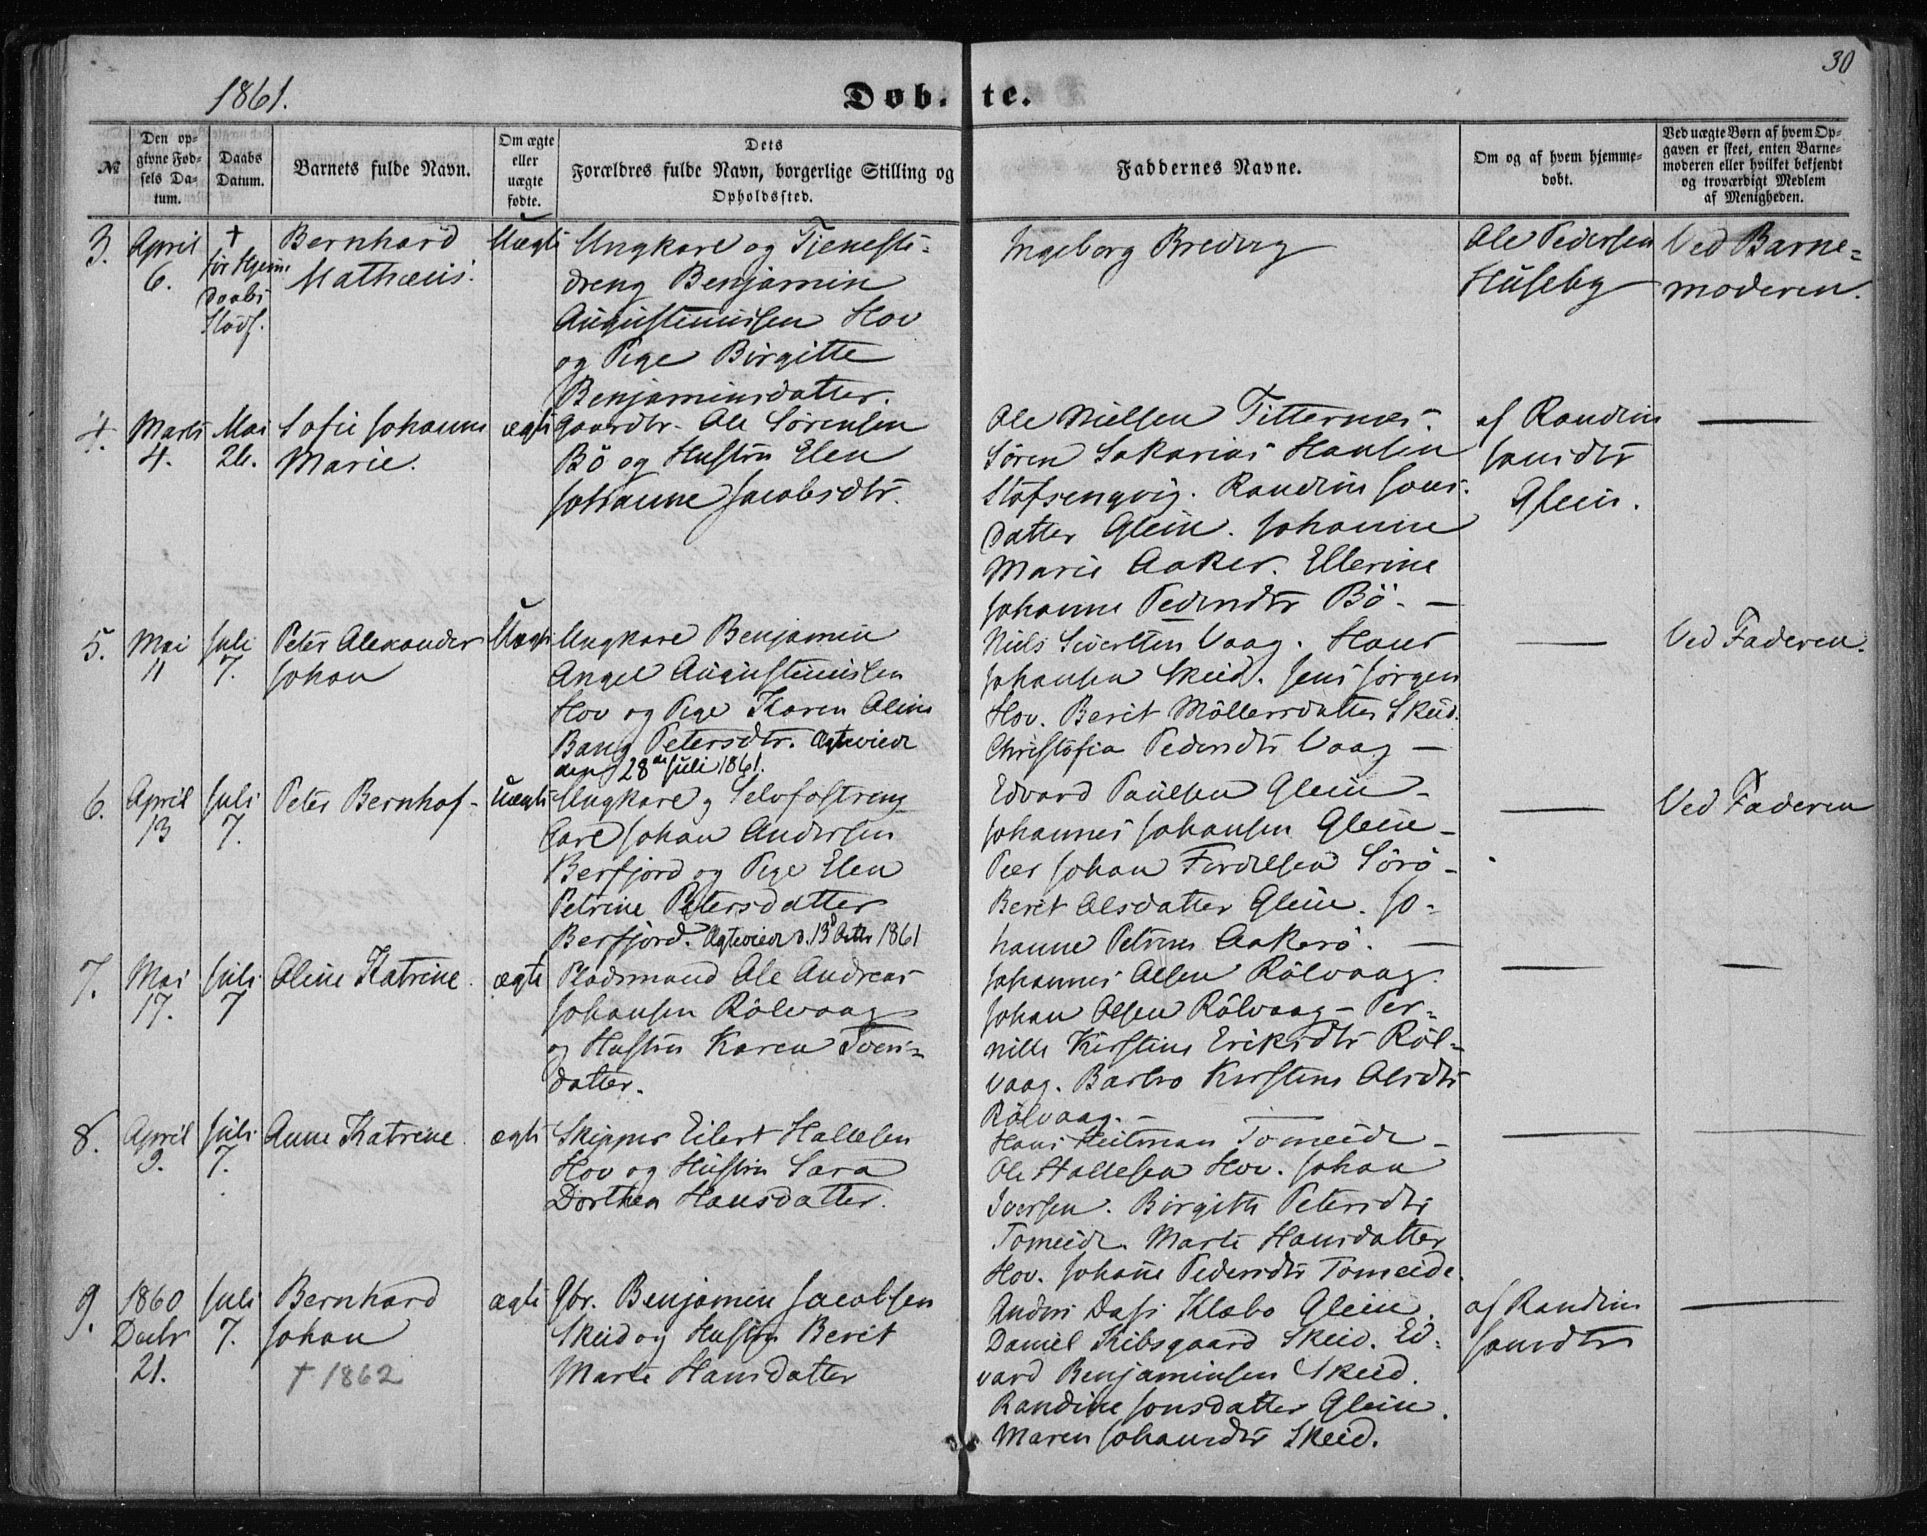 30
1861.
Døbte.
№
Den opgivne Fødsels Datum.
Daabs Datum.
Barnets fulde Navn.
Om ægte eller uægte fødte.
Dets Forældres fulde Navn, borgerlige Stilling og Opholdssted.
Faddernes Navne.
Om og af hvem hjemmedøbt.
Ved uægte Børn af hvem Opgaven er skeet, enten Barnemoderen eller hvilket bekjendt og troværdigt Medlem af Menigheden.
3. April 6.
† før Hjemme
daabs
Stadf.
Bernhard
Mathæus.
Uægte
Ungkare og Tjeneste-
dreng Benjamin
Augustinussen Hov
og Pige Birgitte
Benjaminsdatter.
Ingeborg
Ole Pedersen
Huseby
Ved Barne=
moderen.
4. Marts 4.
Mai 26.
Sofie Johanna
Marie.
ægte
Gaardbr. Ole Sørensen
Bö og Hustru Elen
Johanne Jacobsdtr.
Ole Nielsen Titternes.
Søren Sakarias Hansen
Randine Jons-
datter Glein. Johanne
Marie Aaker. Ellerine
Johanne Pedersdtr Bö. —
af Randine
Jonsdtr
Glein.
—
5. Mai 11
Juli 7.
Peter Alexander
Johan
Uægte
Ungkare Benjamin
Angel Augustinussen
Hov og Pige Karen Oline
Bang Petersdtr. Ægteviede
den 28de Juli 1861.
Niels Sivertsen Vaag. Hans
Johansen Skeid. Jens Jørgen
Hov. Berit Möllersdatter Skeid.
Christofia Pedersdtr Vaag —
—
Ved Faderen.
6. April 13
Juli 7.
Peter Bernhof-
Uægte
Ungkare og Selvfostring
Carl Johan Andersen
Berfjord og Pige Elen
Petrine Petersdatter
Berfjord. Ægteviede d. 13d Octbr 1861
Edvard Paulsen Glein-
Johannes Johansen Glein-
Peer Johan Fordelsen Sörö-
Berit Olsdatter Glein. Jo-
hanne Petrine Aakerö. —
—
Ved Faderen
7. Mai 17.
Juli 7
Oline Katrine.
ægte
Pladsmand Ole Andreas
Johansen Rölvaag
og Hustru Karen Ivers=
datter.
Johannes Olsen Rölvaag.
Johan Olsen Rölvaag - Per=
nille Kirstine Eriksdtr Röl=
vaag. Barbro Kirstine Olsdtr
Rölvaag. —
—
—
8. April 9.
Juli 7.
Anne Katrine.
ægte
Skipper Eilert Hallesen
Hov og Hustru Sara
Dorthea Hansdatter.
Hans Heitman Tomeide -
Ole Hallesen Hov. Johan
Iversen. Birgitte Petersdtr
Tomeide. Marte Hansdatter
Hov. Johanne Pedersdtr Tomeide.
—
—
9. 1860
Decbr
21.
Juli 7.
Bernhard
Johan
† 1862
ægte
Gbr. Benjamin Jacobsen
Skeid og Hustru Berit
Marte Hansdatter
Anders Dass Klæbo Glein.
Daniel Skibsgaard Skeid. Ed=
vard Benjaminsen Skeid.
Randine Jonsdatter Glein.
Maren Johansdtr Skeid.
af Randine
Jonsdtr
—